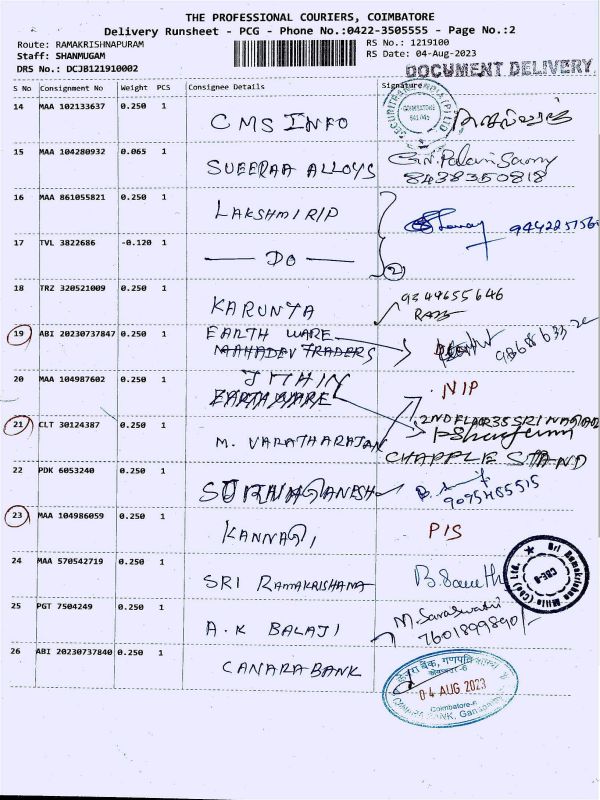 THE PROFESSIONAL COURIERS, COIMBATORE
Delivery Runsheet - PCG - Phone No.:0422-3505555 - Page No.:2
Route: RAMAKRISHNAPURAM
RS No.: 1219100
Staff: SHANMUGAM
RS Date: 04-Aug-2023
DRS No.: DCJB121910002
DOCUMENT DELIVERY
S No Consignment No Weight PCS Consignee Details Signature
14 MAA 102133637 0.250 1 CMS INFO
15 MAA 104280932 0.065 1 SUEERAA ALLOYS G.N. Palani Samy
8438350818
16 MAA 861055821 0.250 1 LAKSHMI RIP
17 TVL 3822686 -0.120 1 DO 2
18 TRZ 320521009 0.250 1 KARUNYA 9344655646
19 ABI 20230737847 0.250 1 EARTH WARE
MAHADEV TRADERS
20 MAA 104987602 0.250 1 JITHIN NIP
EARTH WARE
21 CLT 30124387 0.250 1 M. VARATHARAJAN
CHAPPLE STAND
22 PDK 6053240 0.250 1 GANESH
23 MAA 104986059 0.250 1 KANNAGI PIS
24 MAA 570542719 0.250 1 SRI RAMAKRISHANA
Sri Ramakrishna Mills (Cbe) Ltd. CBE-6
25 PGT 7504249 0.250 1 A.K BALAJI M. Saraswathi
7601899890/-
26 ABI 20230737840 0.250 1 CANARA BANK
04 AUG 2023
Coimbatore-6
CANARA BANK,